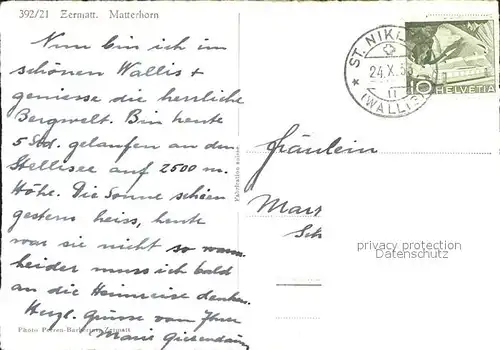 392/21 Zermatt. Matterhorn
Nun bin ich im
schönen Wallis +
geniesse die herrliche
Bergwelt. Bin heute
5 Std. gelaufen an den
Stellisee auf 2500 m.
Höhe. Die Sonne schien
gestern heiss, heute
war sie nicht so warm.
Leider muss ich bald
an die Heimreise denken.
Herzl. Grüsse von Ihrer
Marie
Photo Perren-Barberini, Zermatt
ST. NIKL
24.X.5
(WALLIS)
10 HELVETIA
Fräulein
privacy protection
Datenschutz